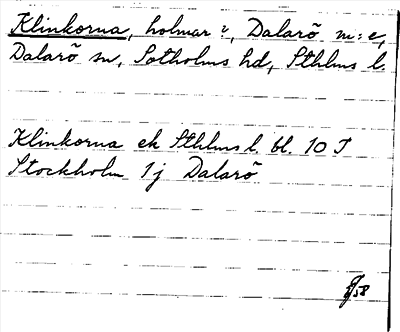 Klinkorna, holmar ?, Dalarö m:e,
Dalarö sn, Sotholms hd, Sthlms l.
Klinkorna ek Sthlms l. bl. 10 J
Stockholm 1j Dalarö
58